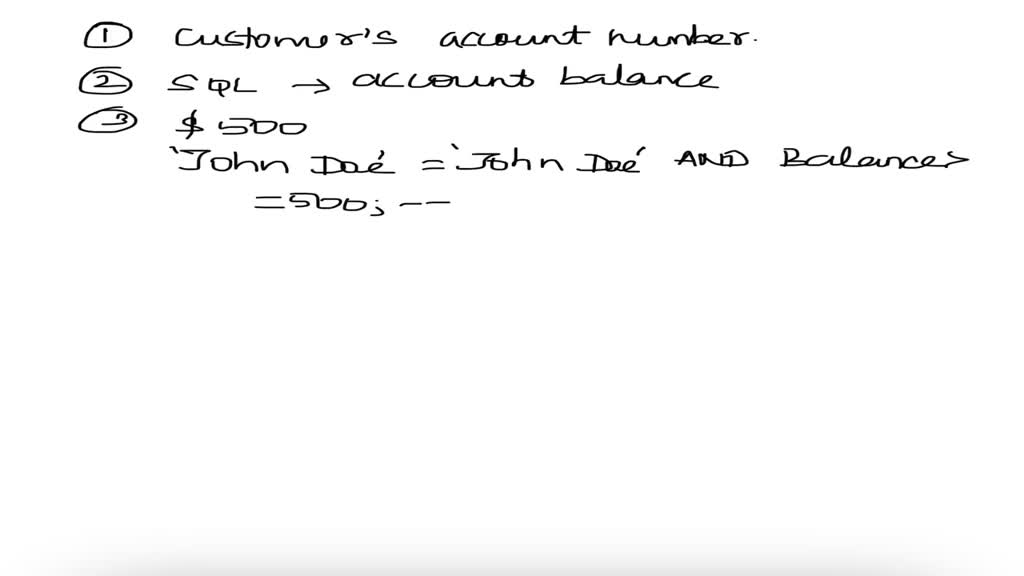 ① Customer's account number.
② SQL → account balance
③ $500
'John Doe' = 'John Doe' AND Balance>
=500; --